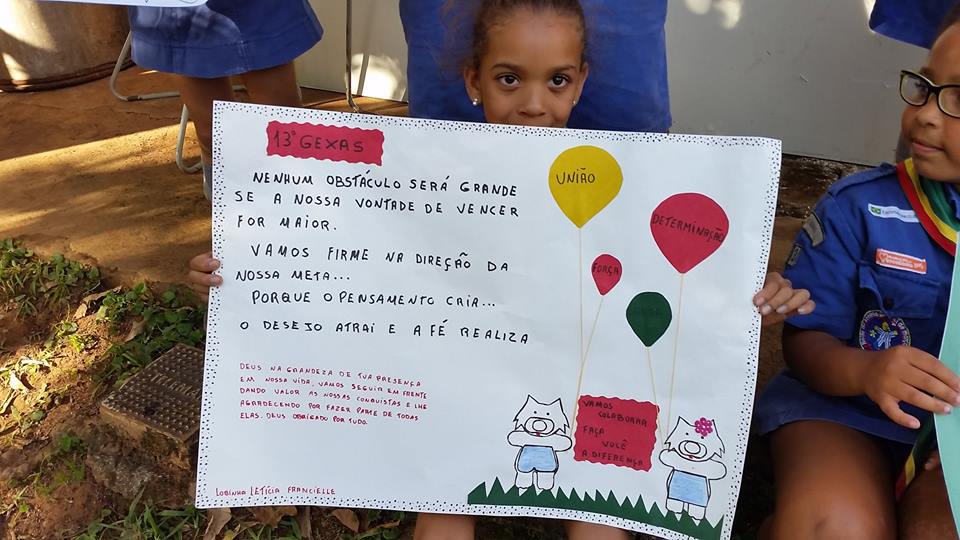 13º GEXAS
NENHUM OBSTÁCULO SERÁ GRANDE
SE A NOSSA VONTADE DE VENCER
FOR MAIOR.
VAMOS FIRME NA DIREÇÃO DA
NOSSA META...
PORQUE O PENSAMENTO CRIAR...
O DESEJO ATRAI E A FÉ REALIZA
DEUS NA GRANDEZA DE TUA PRESENÇA
EM NOSSA VIDA, VAMOS SEGUIR EM FRENTE
DANDO VALOR AS NOSSAS CONQUISTAS E LHE
AGRADECENDO POR FAZER PARTE DE TODAS
ELAS. DEUS OBRIGADO POR TUDO.
LOBINHA LETÍCIA FRANCIELLE
UNIÃO
DETERMINAÇÃO
FORÇA
VAMOS
COLABORAR
FAÇA
VOCÊ
A DIFERENÇA